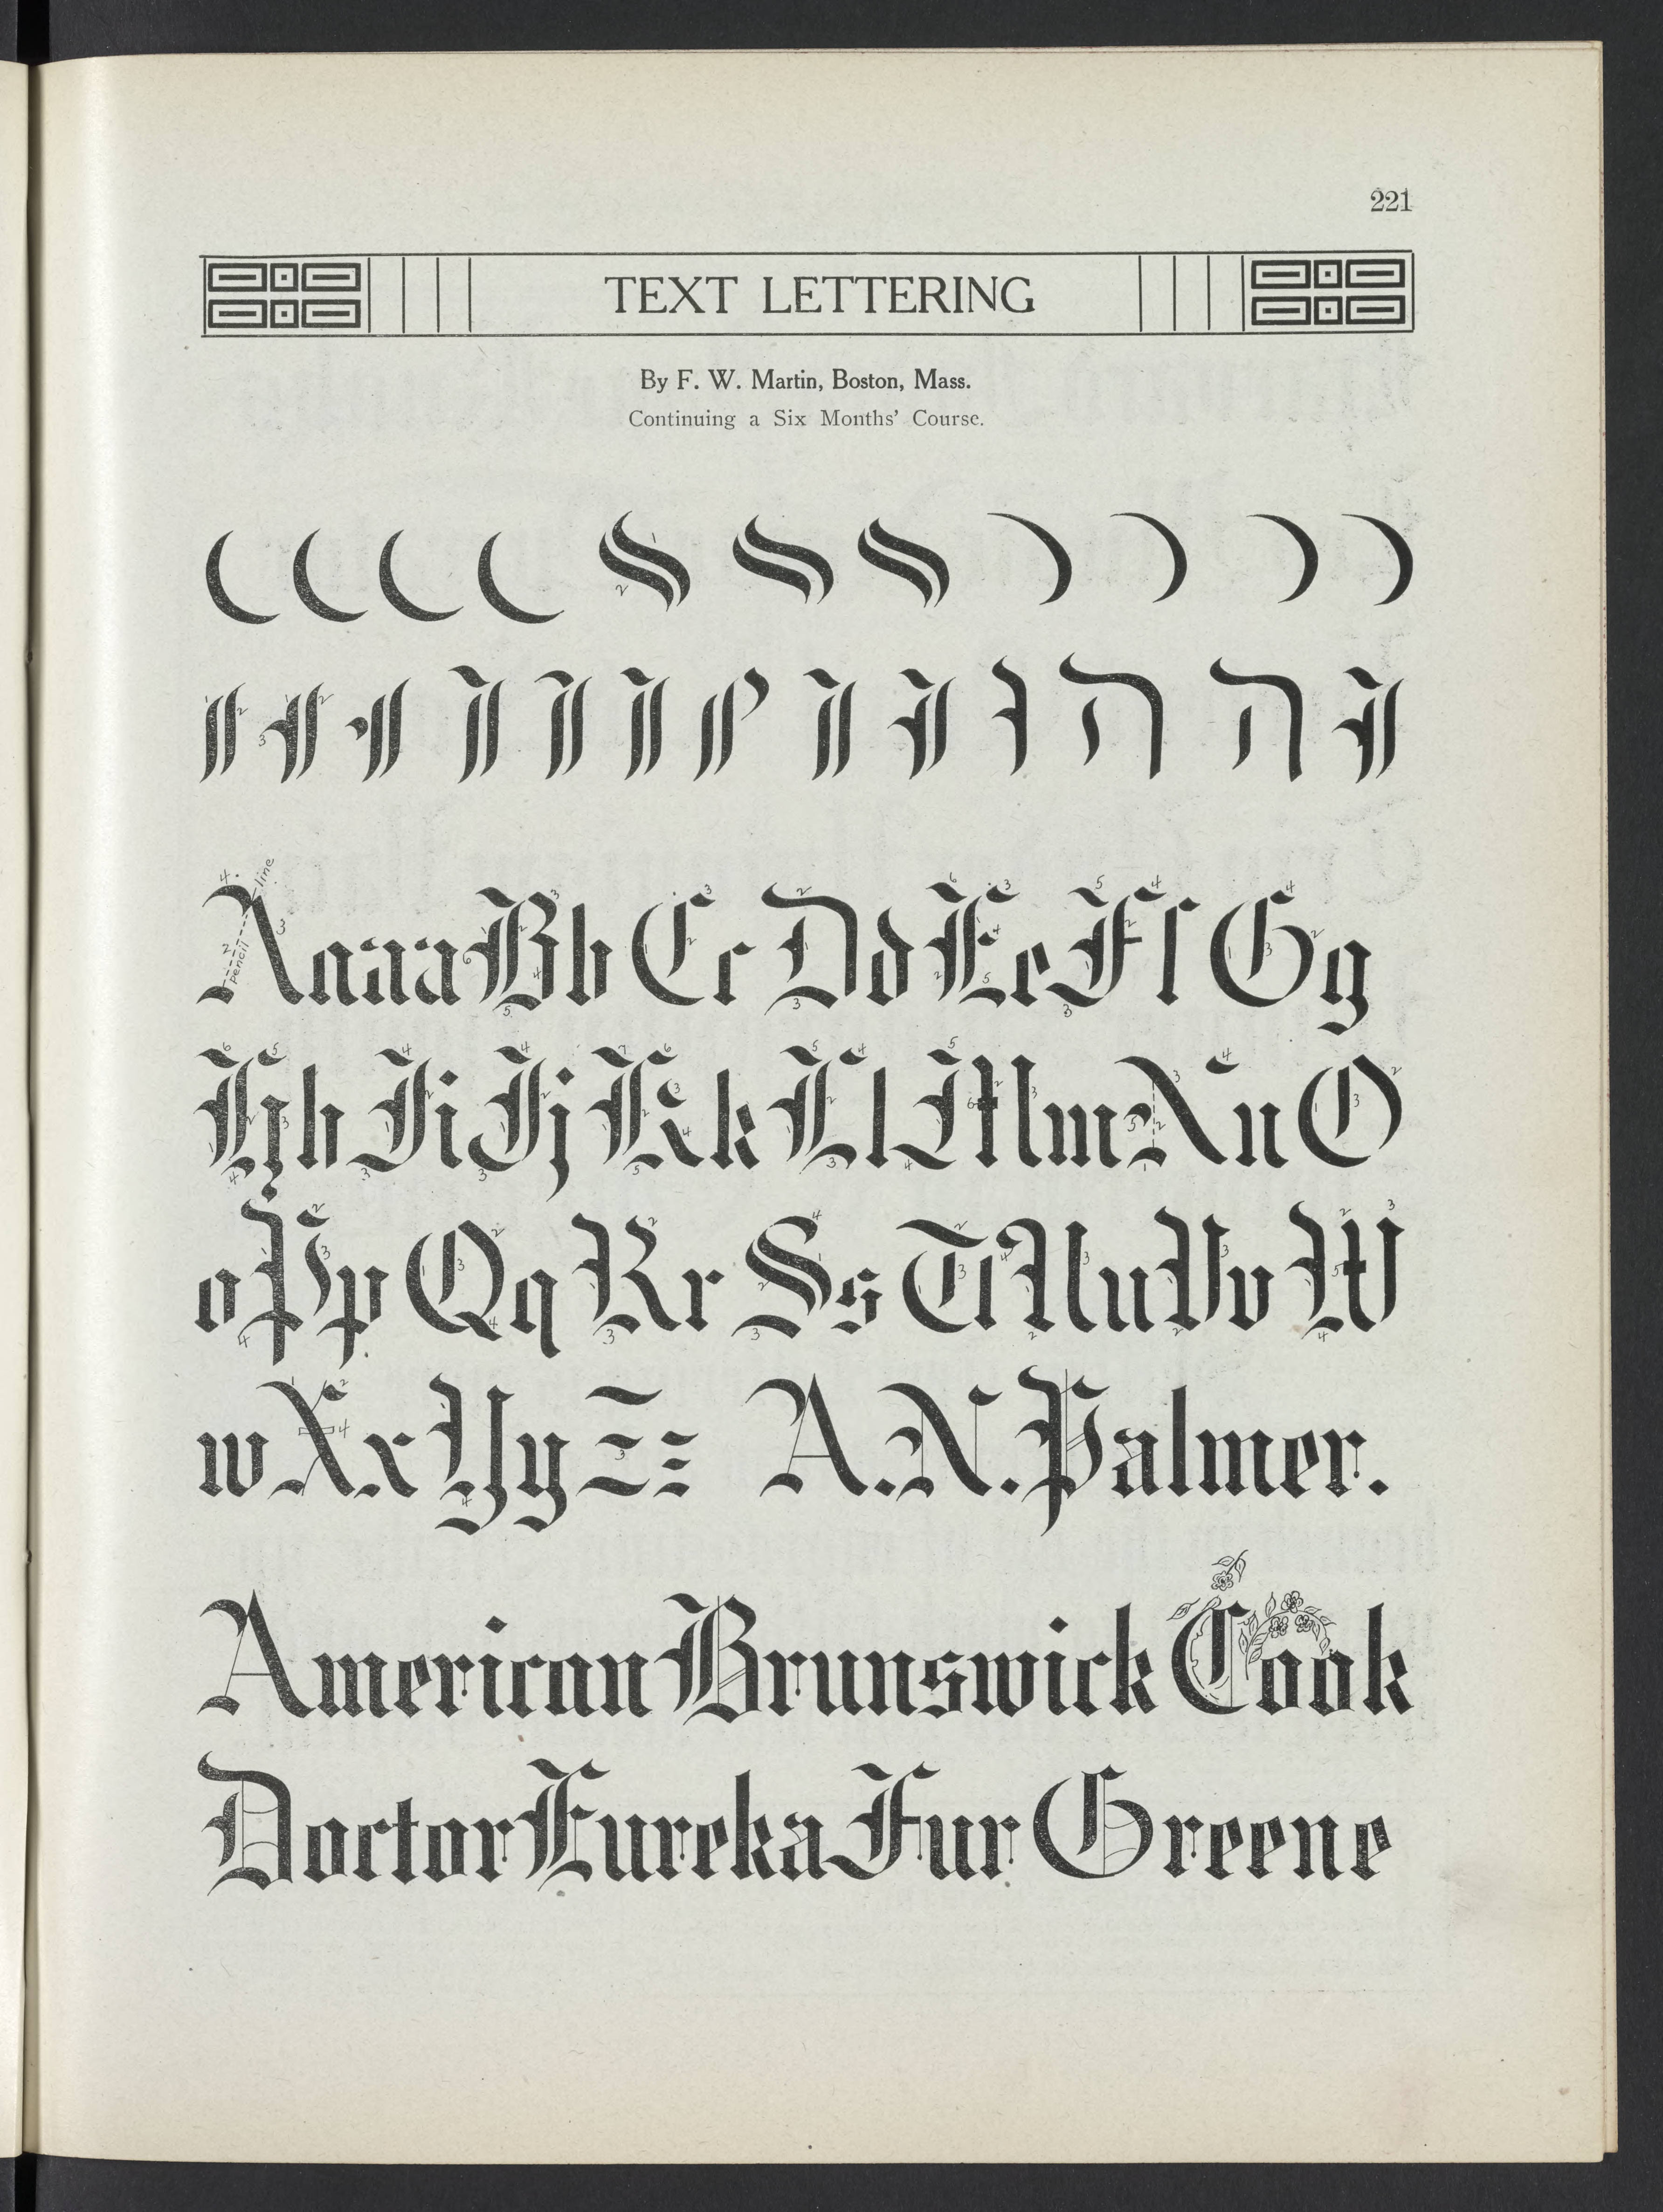 221
TEXT LETTERING
By F. W. Martin, Boston, Mass.
Continuing a Six Months' Course.
A a a a a B b C c D d E e F f G g
H h I i J j K k L l M l m N n O
o P p Q q R r S s T t U u V v W
w X x Y y Z z A. N. Palmer.
American Brunswick Cook
Doctor Eureka Fur Greene